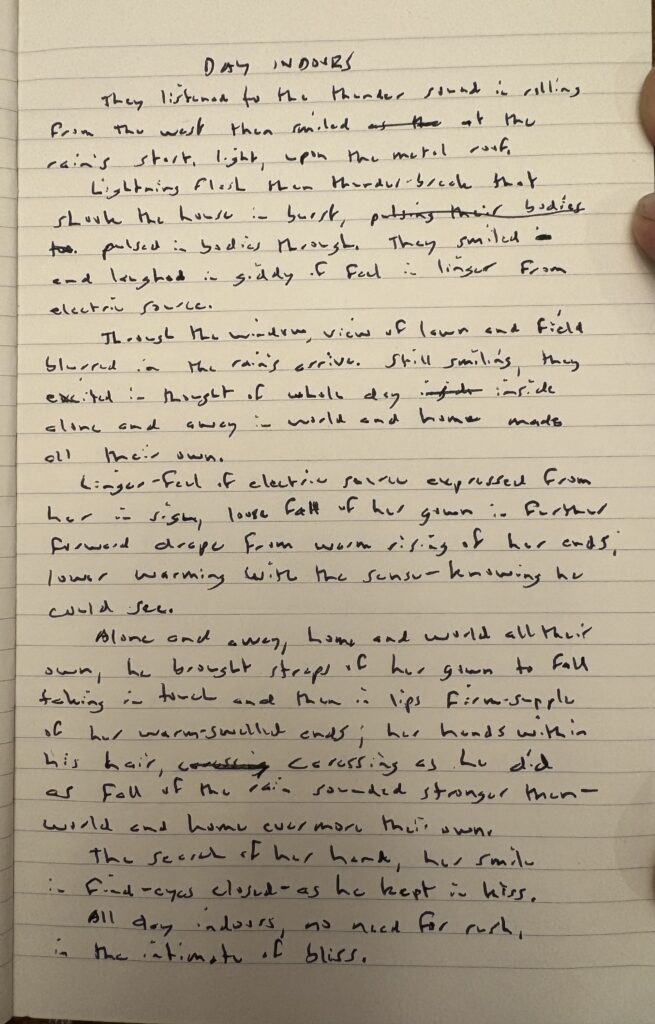 DAY INDOORS
They listened to the thunder sound in rolling
from the west then smiled as the at the
rain's start, light, upon the metal roof.
Lightning flash then thunder-break that
shook the house in burst, pulsing their bodies
too. pulsed in bodies through. They smiled
and laughed in giddy of feel in linger from
electric source.
Through the window, view of lawn and field
blurred in the rain's arrive. Still smiling, they
excited in thought of whole day inside inside
alone and away in world and home made
all their own.
Linger-feel of electric source expressed from
her in sigh, loose fall of her gown in further
forward drape from warm rising of her ends;
lower warming with the sense-knowing he
could see.
Alone and away, home and world all their
own, he brought straps of her gown to fall
taking in touch and then in lips firm-supple
of her warm-swelled ends; her hands within
his hair, caressing caressing as he did
as fall of the rain sounded stronger then-
world and home evermore their own.
The search of her hand, her smile
in find-eyes closed-as he kept in kiss.
All day indoors, no need for rush,
in the intimate of bliss.